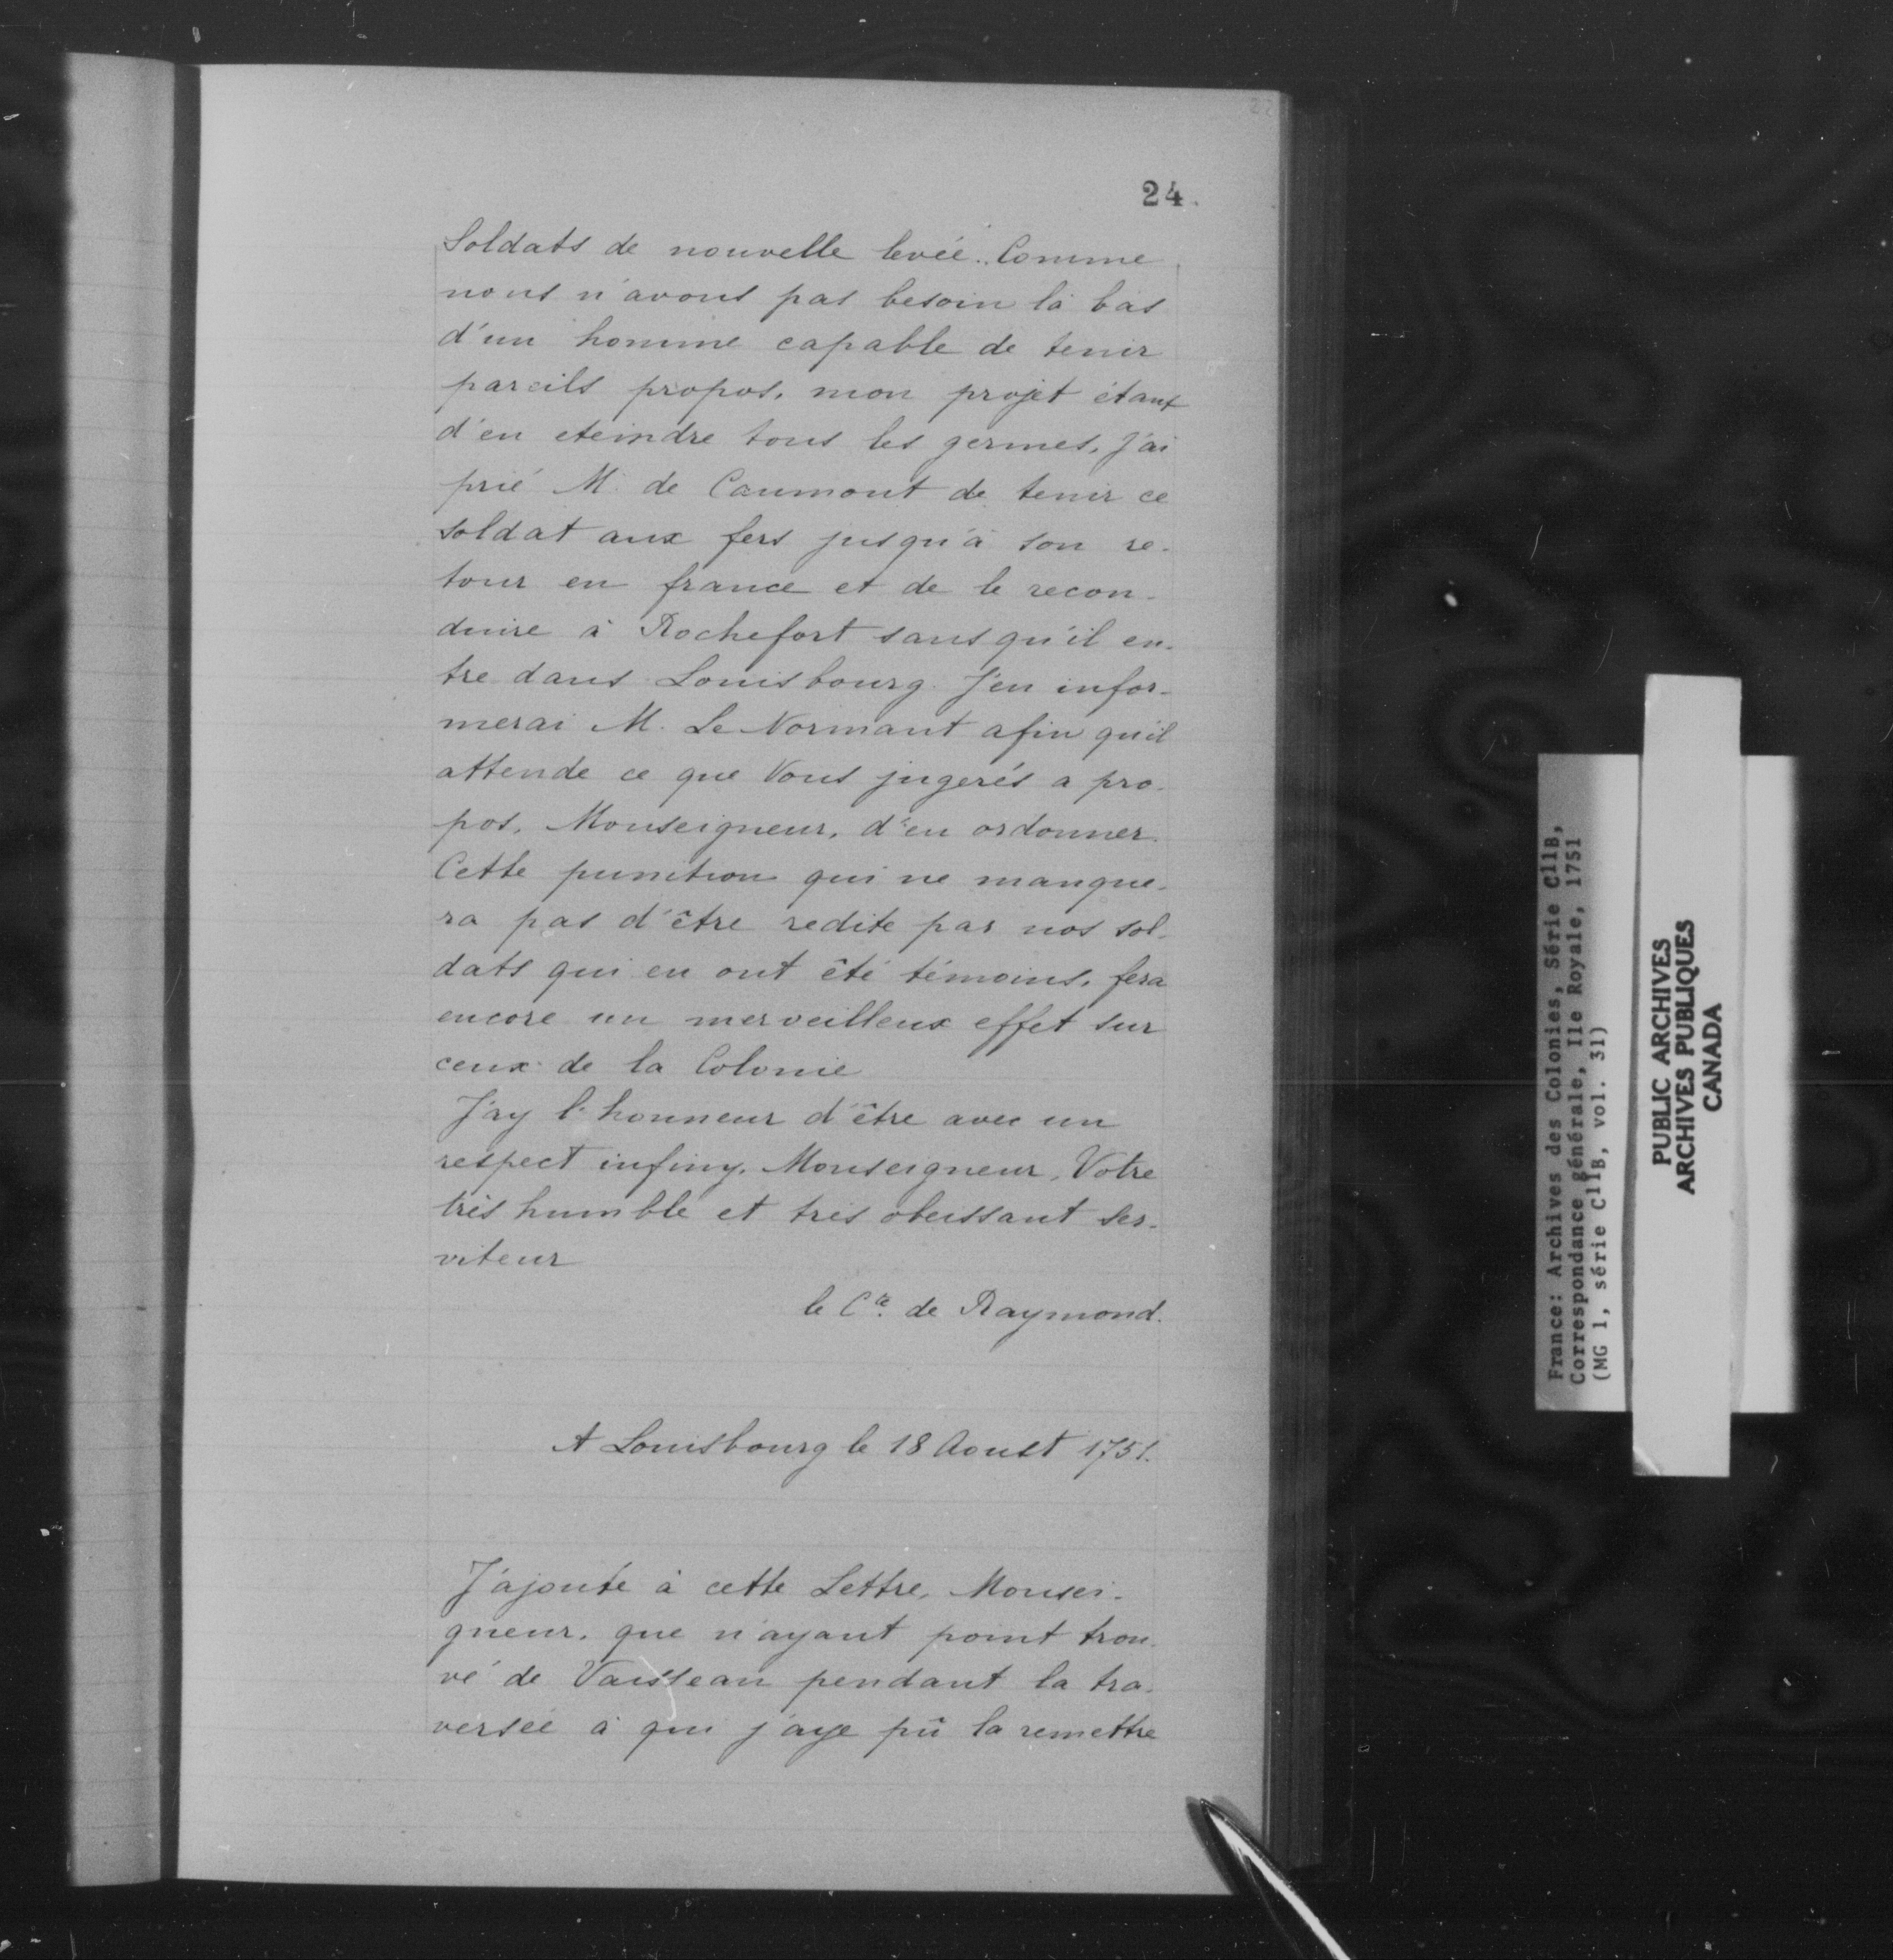 24.
Soldats de nouvelle levée. Comme
nous n'avons pas besoin là bas
d'un homme capable de tenir
pareils propos, mon projet étant
d'en eteindre tous les germes, j'ai
prié M. de Caumont de tenir ce
soldat aux fers jusqu'à son re-
tour en france et de le recon-
duire à Rochefort sans qu'il en-
tre dans Louisbourg. J'en infor-
merai M. Le Normant afin qu'il
attende ce que Vous jugerés a pro-
pos, Monseigneur, d'en ordonner.
Cette punition qui ne manque-
ra pas d'être redite par nos sol-
dats qui en ont été témoins, fera
encore un merveilleux effet sur
ceux de la Colonie
J'ay l'honneur d'être avec un
respect infiny, Monseigneur, Votre
très humble et tres obeissant ser-
viteur
le Cte de Raymond.
A Louisbourg le 18 Aoust 1751.
J'ajoute à cette Lettre, Monsei-
gneur, que n'ayant point trou-
vé de Vaisseau pendant la tra-
versée à qui j'aye pû la remettre
France: Archives des Colonies, Série C11B,
Correspondance générale, Ile Royale, 1751
(MG 1, série C11B, vol. 31)
PUBLIC ARCHIVES
ARCHIVES PUBLIQUES
CANADA